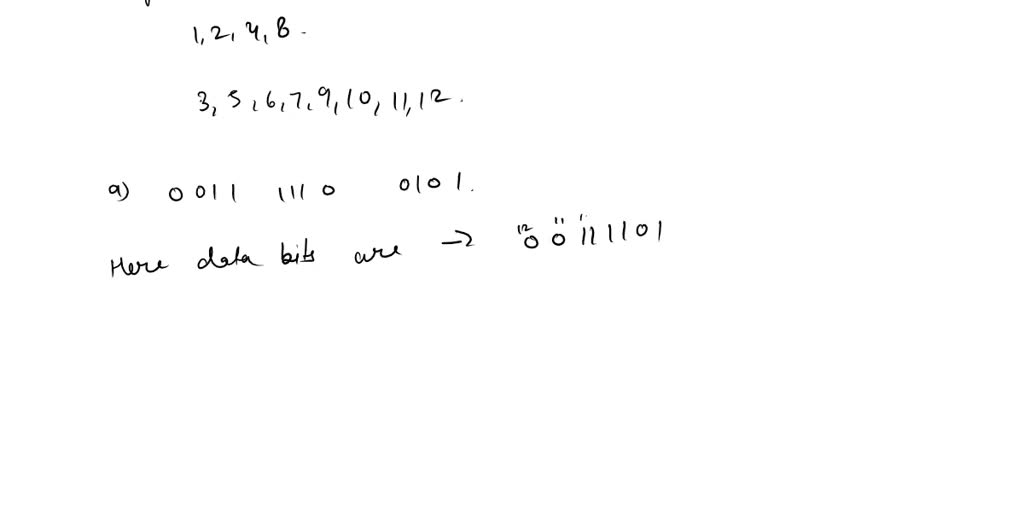 1, 2, 4, 8.
3, 5, 6, 7, 9, 10, 11, 12.
a) 0011 1110 0101.
12 11 1
Here data bits are → 00111101